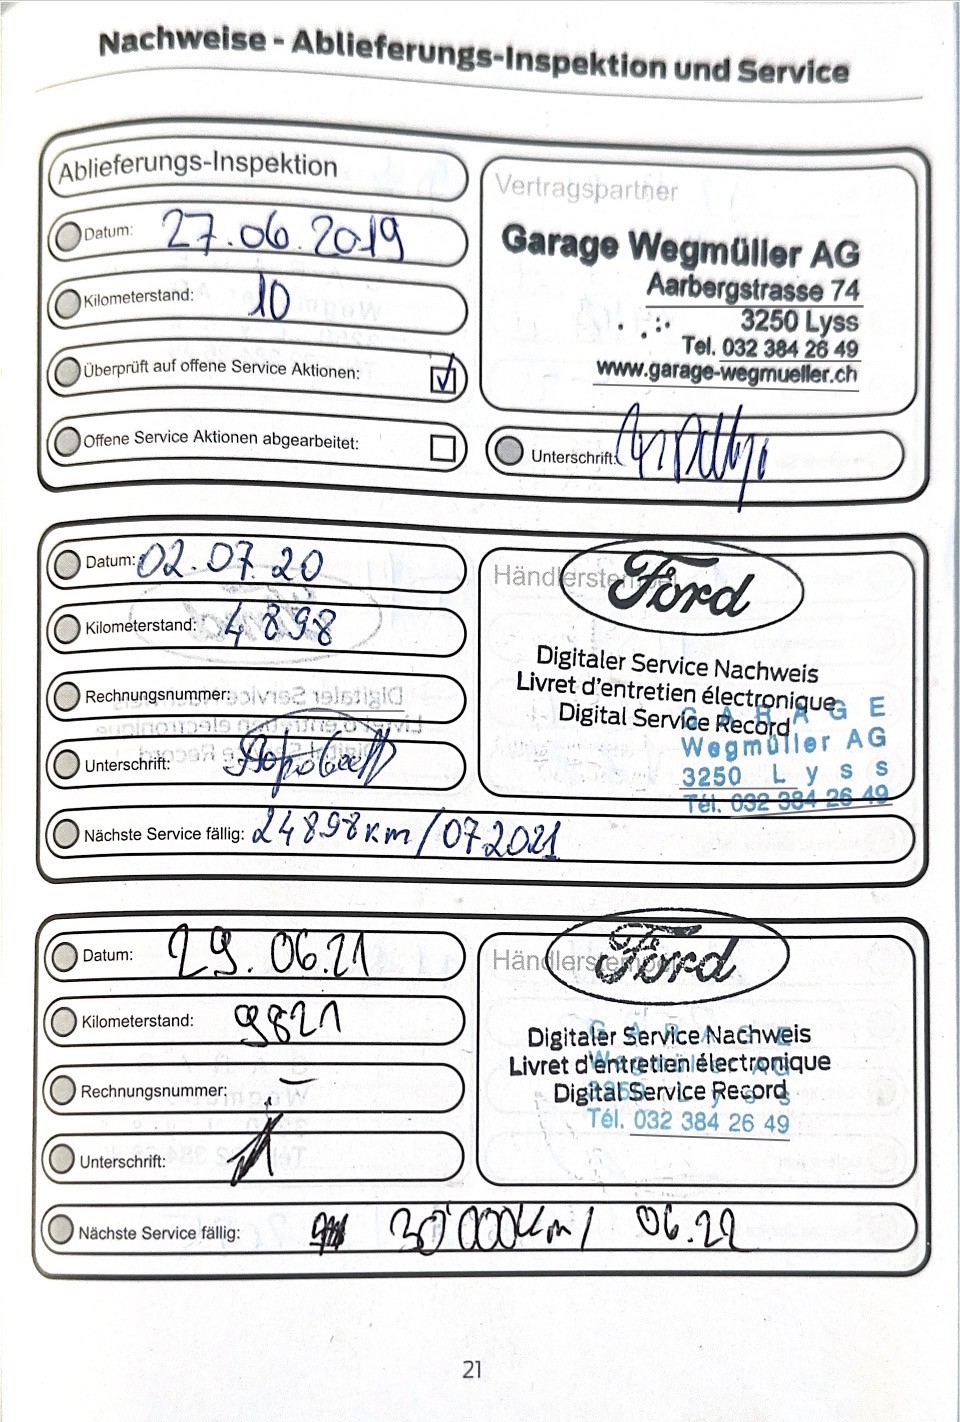 Nachweise - Ablieferungs-Inspektion und Service
Ablieferungs-Inspektion
Datum: 27.06.2019
Kilometerstand: 10
Überprüft auf offene Service Aktionen:
Offene Service Aktionen abgearbeitet:
Vertragspartner
Garage Wegmüller AG
Aarbergstrasse 74
3250 Lyss
Tel. 032 384 26 49
www.garage-wegmueller.ch
Unterschrift:
Datum: 02.07.20
Kilometerstand: 4898
Rechnungsnummer:
Unterschrift:
Händlerstempel
Ford
Digitaler Service Nachweis
Livret d'entretien électronique
Digital Service Record
GARAGE
Wegmüller AG
3250 Lyss
Tél. 032 384 26 49
Nächste Service fällig: 24898km/07.2021
Datum: 29.06.21
Kilometerstand: 9821
Rechnungsnummer: –
Unterschrift:
Händlerstempel
Ford
Digitaler Service Nachweis
Livret d'entretien électronique
Digital Service Record
GARAGE
Wegmüller AG
3250 Lyss
Tél. 032 384 26 49
Nächste Service fällig: 30'000Km/ 06.22
21